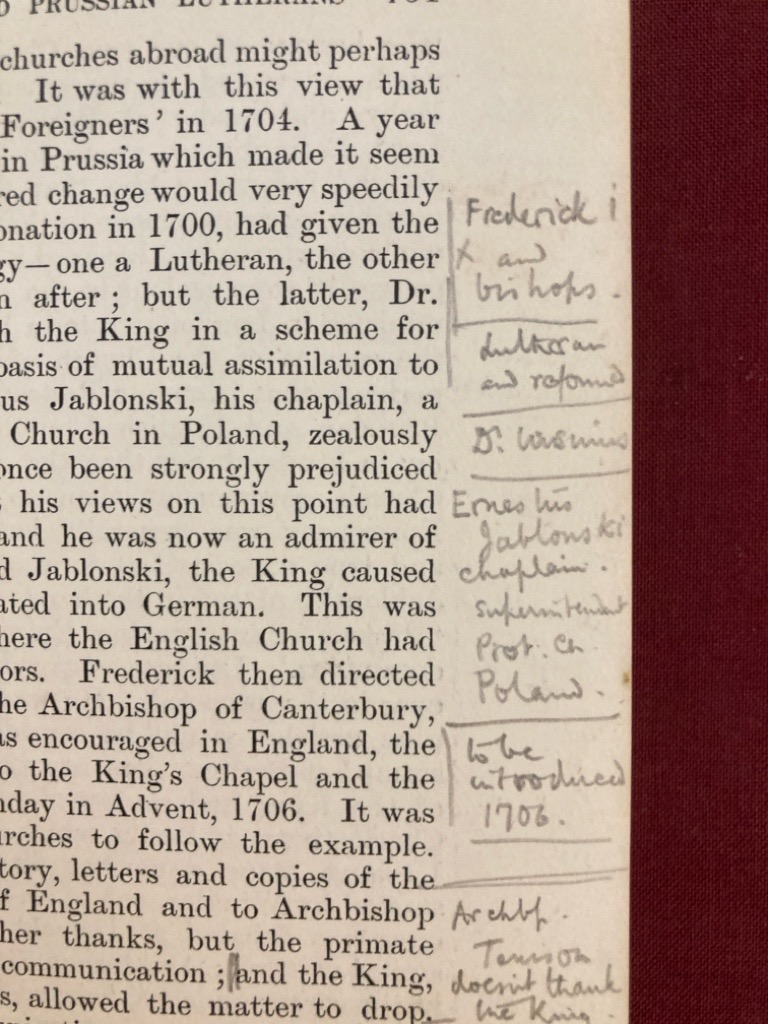 PRUSSIAN LUTHERANS
churches abroad might perhaps
It was with this view that
Foreigners' in 1704. A year
in Prussia which made it seem
red change would very speedily
onation in 1700, had given the
gy—one a Lutheran, the other
n after; but the latter, Dr.
h the King in a scheme for
basis of mutual assimilation to
us Jablonski, his chaplain, a
Church in Poland, zealously
once been strongly prejudiced
s his views on this point had
and he was now an admirer of
d Jablonski, the King caused
ated into German. This was
here the English Church had
ors. Frederick then directed
he Archbishop of Canterbury,
as encouraged in England, the
o the King's Chapel and the
nday in Advent, 1706. It was
urches to follow the example.
tory, letters and copies of the
f England and to Archbishop
her thanks, but the primate
communication; and the King,
s, allowed the matter to drop.
Frederick i
x and
bishops.
Lutheran
and reformed
Dr. Ursinus
Ernestus
Jablonski
chaplain.
superintendent
Prot. Ch.
Poland.
to be
introduced
1706.
Archbp.
Tenison
doesn't thank
the King.